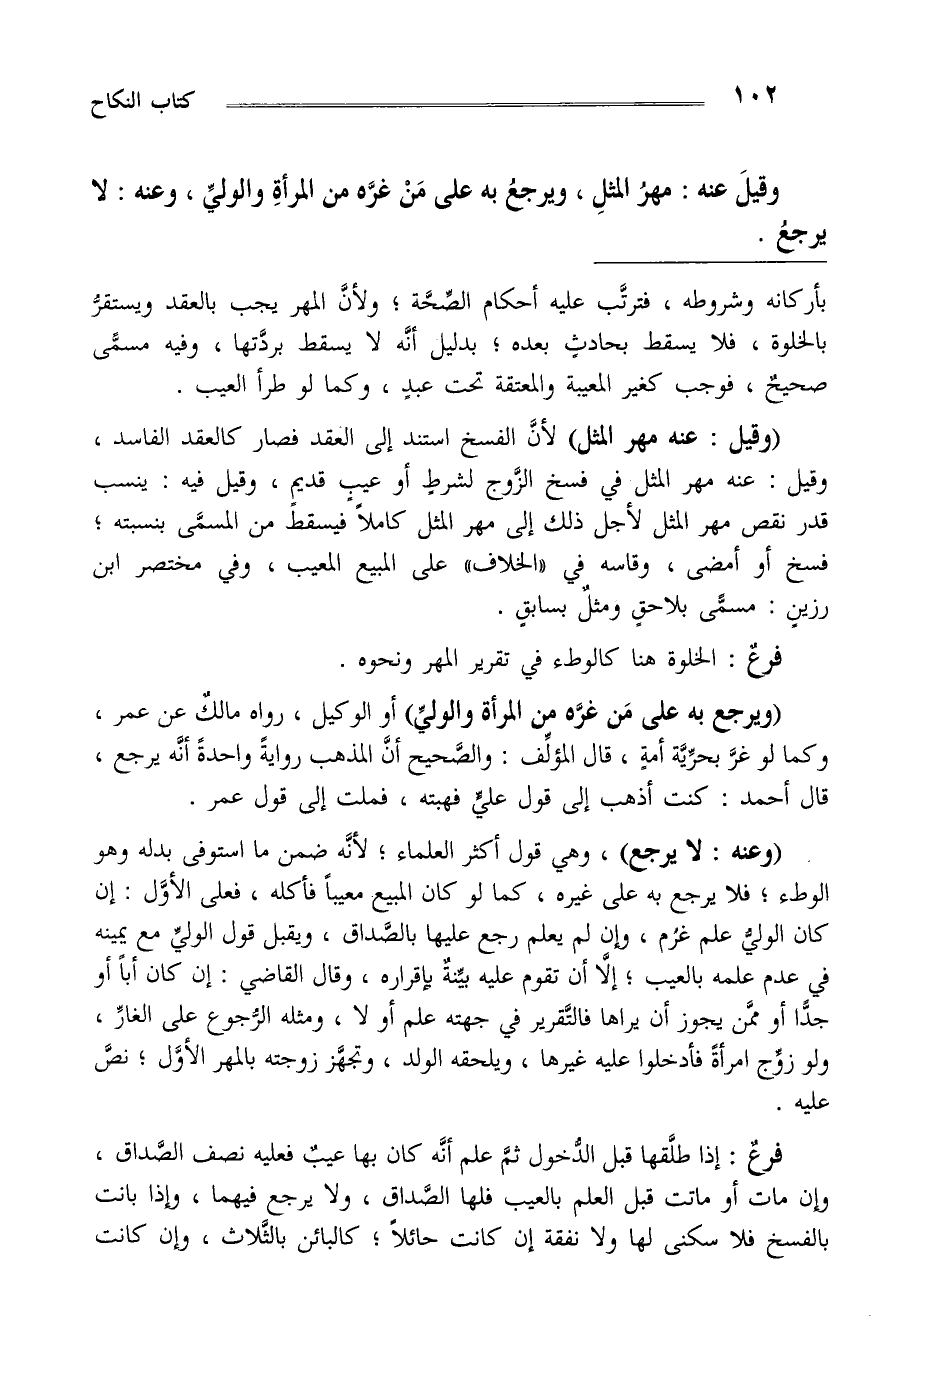 ١٠٢ كتاب النكاح
وقيلَ عنه : مهرُ المثلِ ، ويرجعُ به على مَنْ غرَّه من المرأةِ والوليِّ ، وعنه : لا
يرجعُ .
بأركانه وشروطه ، فترتَّب عليه أحكام الصِّحَّة ؛ ولأنَّ المهر يجب بالعقد ويستقرُّ
بالخلوة ، فلا يسقط بحادثٍ بعده ؛ بدليل أنَّه لا يسقط بردَّتها ، وفيه مسمَّى
صحيحٌ ، فوجب كغير المعيبة والمعتقة تحت عبدٍ ، وكما لو طرأ العيب .
(وقيل : عنه مهر المثل) لأنَّ الفسخ استند إلى العقد فصار كالعقد الفاسد ،
وقيل : عنه مهر المثل في فسخ الزَّوج لشرطٍ أو عيبٍ قديمٍ ، وقيل فيه : ينسب
قدر نقص مهر المثل لأجل ذلك إلى مهر المثل كاملاً فيسقط من المسمَّى بنسبته ؛
فسخ أو أمضى ، وقاسه في «الخلاف» على المبيع المعيب ، وفي مختصر ابن
رزينٍ : مسمًّى بلاحقٍ ومثلٌ بسابقٍ .
فرعٌ : الخلوة هنا كالوطء في تقرير المهر ونحوه .
(ويرجع به على مَن غرَّه من المرأة والوليِّ) أو الوكيل ، رواه مالكٌ عن عمر ،
وكما لو غرَّ بحرِّيَّة أمةٍ ، قال المؤلِّف : والصَّحيح أنَّ المذهب روايةً واحدةً أنَّه يرجع ،
قال أحمد : كنت أذهب إلى قول عليٍّ فهبته ، فملت إلى قول عمر .
(وعنه : لا يرجع) ، وهي قول أكثر العلماء ؛ لأنَّه ضمن ما استوفى بدله وهو
الوطء ؛ فلا يرجع به على غيره ، كما لو كان المبيع معيباً فأكله ، فعلى الأوَّل : إن
كان الوليُّ علم غرُم ، وإن لم يعلم رجع عليها بالصَّداق ، ويقبل قول الوليِّ مع يمينه
في عدم علمه بالعيب ؛ إلَّا أن تقوم عليه بيِّنةٌ بإقراره ، وقال القاضي : إن كان أباً أو
جدًّا أو ممَّن يجوز أن يراها فالتَّقرير في جهته علم أو لا ، ومثله الرُّجوع على الغارِّ ،
ولو زوِّج امرأةً فأدخلوا عليه غيرها ، ويلحقه الولد ، وتجهَّز زوجته بالمهر الأوَّل ؛ نصَّ
عليه .
فرعٌ : إذا طلَّقها قبل الدُّخول ثمَّ علم أنَّه كان بها عيبٌ فعليه نصف الصَّداق ،
وإن مات أو ماتت قبل العلم بالعيب فلها الصَّداق ، ولا يرجع فيهما ، وإذا بانت
بالفسخ فلا سكنى لها ولا نفقة إن كانت حائلاً ؛ كالبائن بالثَّلاث ، وإن كانت